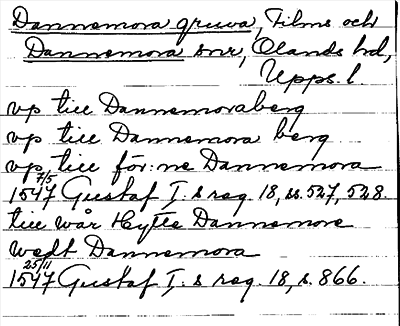 Dannemora gruva, Films och
Dannemora snr, Olands hd,
Upps. l.
vp till Dannemoraberg
vp till Dannemora berg
vp till för:ne Dannemora
1547 7/5 Gustaf I:s reg. 18, ss. 527, 528.
till wår Hytte Dannemore
wedt Dannemora
1547 25/11 Gustaf I:s reg. 18, s. 866.